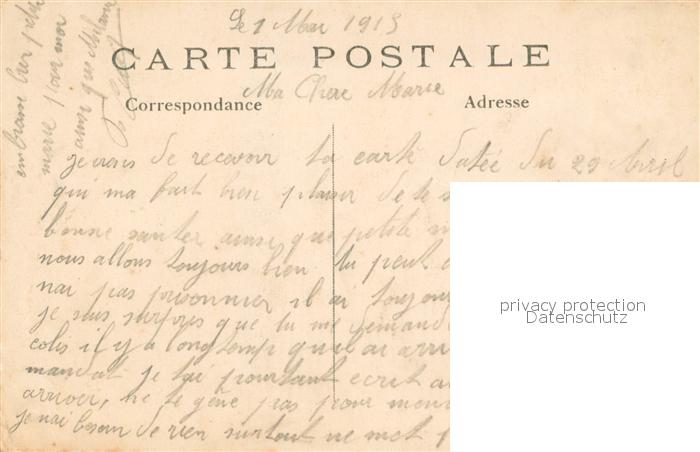 Le 1 Mai 1915
CARTE POSTALE
Ma Chere Marie
Correspondance
Adresse
je viens de recevoir ta carte datée du 29 Avril
qui ma fait bien plaisir de te
bonne santer ainsi que petite
nous allons toujours bien tu peut
nai pas prisonnier il ai toujour
je suis surpris que tu me demande
colis il y a longtemp quil ai arri
mandat je tai pourtant ecrit
arriver, ne te gêne pas pour
je nai besoin de rien surtout ne met
embrasse bien petite
marie pour moi
ainsi que
privacy protection
Datenschutz